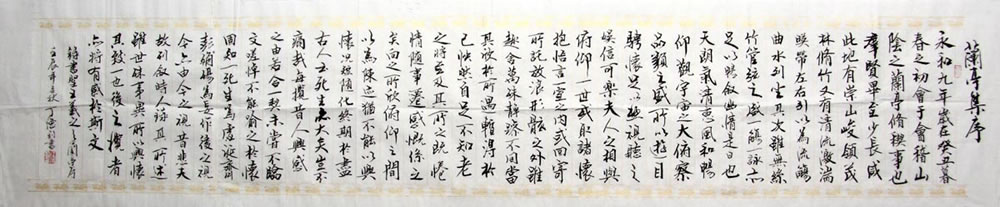 蘭亭集序
永和九年歲在癸丑暮
春之初會于會稽山
陰之蘭亭脩稧事也
群賢畢至少長咸
此地有崇山峻領茂
林脩竹又有清流激湍
暎帶左右引以為流觴
曲水列坐其次雖無絲
竹管弦之盛一觴一詠亦
足以暢敘幽情是日也
天朗氣清惠風和暢
仰觀宇宙之大俯察
品類之盛所以遊目
騁懷足以極視聽之
娛信可樂夫人之相與
俯仰一世或取諸懷
抱悟言一室之內或因寄
所託放浪形骸之外雖
趣舍萬殊靜躁不同當
其欣於所遇暫得於
己快然自足不知老
之將至及其所之既惓
情隨事遷感慨係之
矣向之所欣俛仰之間
以為陳迹猶不能不以興
懷況脩短隨化終期於盡
古人云死生亦大矣豈不
痛哉每攬昔人興感
之由若合一契未嘗不臨
文嗟悼不能喻之於懷
固知一死生為虛誕齊
彭殤為妄作後之視
今亦由今之視昔悲夫
故列敘時人錄其所述
雖世殊事異所以興懷
其致一也後之攬者
亦將有感於斯文
書聖王羲之蘭亭序